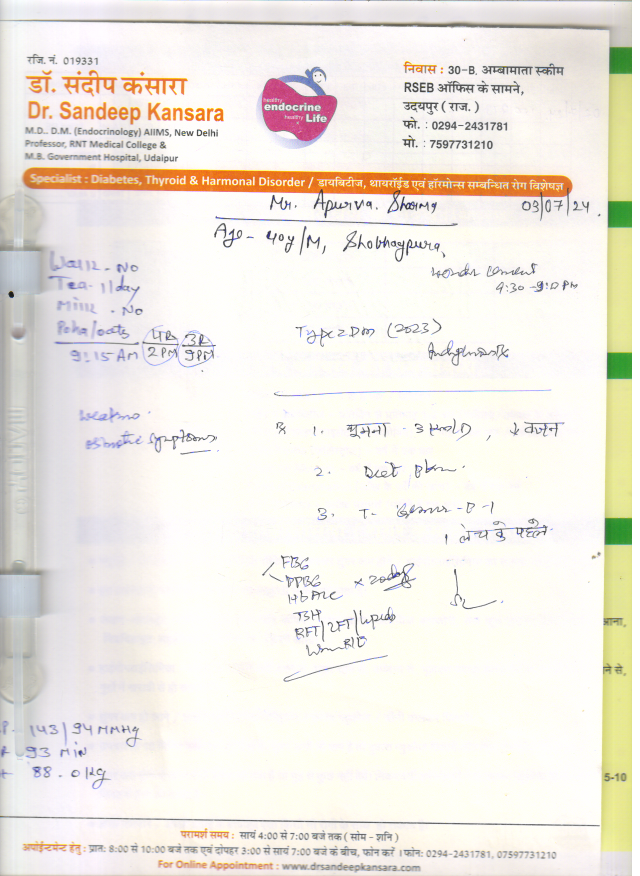 रजि. नं. 019331
डॉ. संदीप कंसारा
Dr. Sandeep Kansara
M.D.. D.M. (Endocrinology) AIIMS, New Delhi
Professor, RNT Medical College &
M.B. Government Hospital, Udaipur
healthy
endocrine
healthy
Life
निवास : 30-B. अम्बामाता स्कीम
RSEB ऑफिस के सामने,
उदयपुर ( राज. )
फो. : 0294-2431781
मो. : 7597731210
Specialist : Diabetes, Thyroid & Harmonal Disorder / डायबिटीज, थायरॉईड एवं हॉरमोन्स सम्बन्धित रोग विशेषज्ञ
Mr. Apurva. Sharma 03/07/24.
Age- 40y/M, Shobhagpura,
Cement
9:30 -9:0 PM
Walk - No
Tea - 1/day
Milk - No
Poha/oats 4R 3R
9:15 AM 2 PM 9 PM
Type 2 DM (2023)
symptoms
Rx 1. घूमना - , ↓ वजन
2. Diet Plan.
3. T. -1
1 लंच के पहले
FBG
PPBG
HbA1c
TSH
RFT/LFT/Lipids
P. 143/94 MMHg
93 MIN
88.0 Kg
आना,
ने से,
5-10
परामर्श समय : सायं 4:00 से 7:00 बजे तक ( सोम - शनि )
अपॉईन्टमेन्ट हेतु : प्रात: 8:00 से 10:00 बजे तक एवं दोपहर 3:00 से सायं 7:00 बजे के बीच, फोन करें । फोन: 0294-2431781, 07597731210
For Online Appointment : www.drsandeepkansara.com